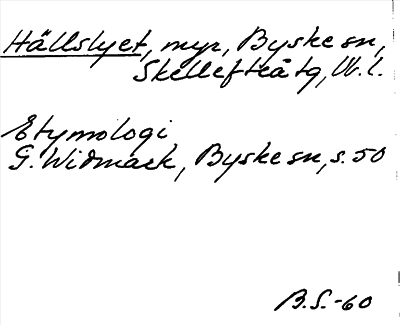 Hällslyet, myr, Byske sn,
Skellefteå tg, W.l.
Etymologi
G. Widmark, Byske sn, s. 50
B.S.-60